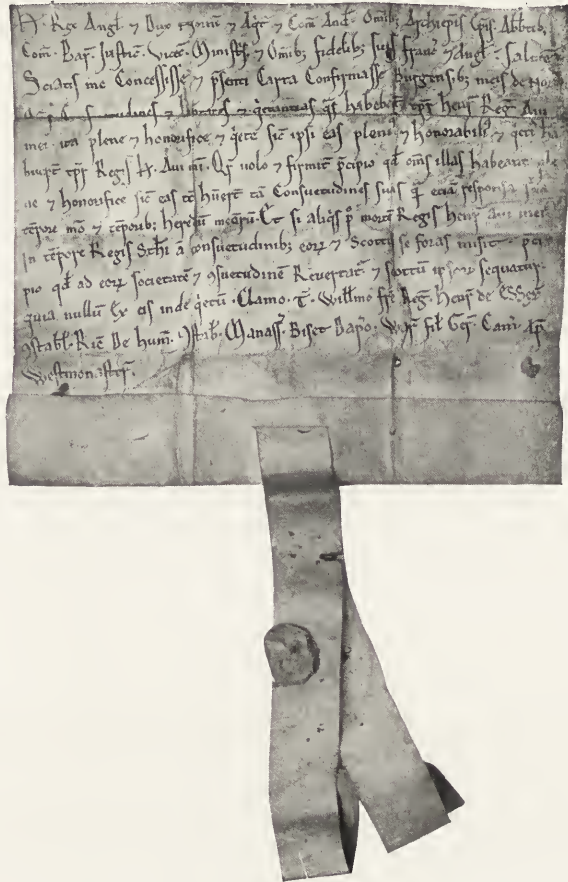 H. Rex Angl. ⁊ Dux Norm̄ ⁊ Aqͭ ⁊ Com̄ And̄. Omīb; Archiepis Ep̄is. Abb̄tib;
Com̄. Bar̄. Justic̄. Vicec̄. Ministr̄. ⁊ Omīb; fidelib; suis Franc̄ ⁊ Angl̄. Salt̄em
Sciatis me Concessisse ⁊ p̄senti Carta Confirmasse Burgensib; meis de
⁊ libtates ⁊ q̄etantias q̄s habebāt tp̄r henr̄ Reḡ Aui
mei. ita plene ⁊ honorifice ⁊ q̄ete sic̄ ipsi eas pleni⁹ ⁊ honorabili⁹ ⁊ q̄eti⁹
huert̄ tp̄r Regis H. Aui mī. Qr̄ uolo ⁊ firmit̄ p̄cipio qd̄ om̄s illas habeant
ne ⁊ honorifice sic̄ eas tē hūert̄ tā Consuetudines suas q̄
tēpore mō ⁊ tēporib; heredū meorū. Et si aliq̄s p⁹ mortē Regis henr̄ aui mei
in tēpore Regis Stħi ā consuetudinib; eor̄ ⁊ Scottū se foras misit. p̄ci
pio qd̄ ad eor̄ societatē ⁊ ꝯsuetudinē Reuertat̄ ⁊ scottū ipsor̄ sequatur.
quia nullum Ex eis inde q̄etū. Clamo. T. Willm̄o fr̄e Reḡ. henr̄ de Essex
ꝯstabl̄. Ric̄ De hum̄. ꝯstab̄. Manass̄. Biset Dap̄o. War̄ fil̄ Ger̄. Cam̄. Ap̄
Westmonaster̄.